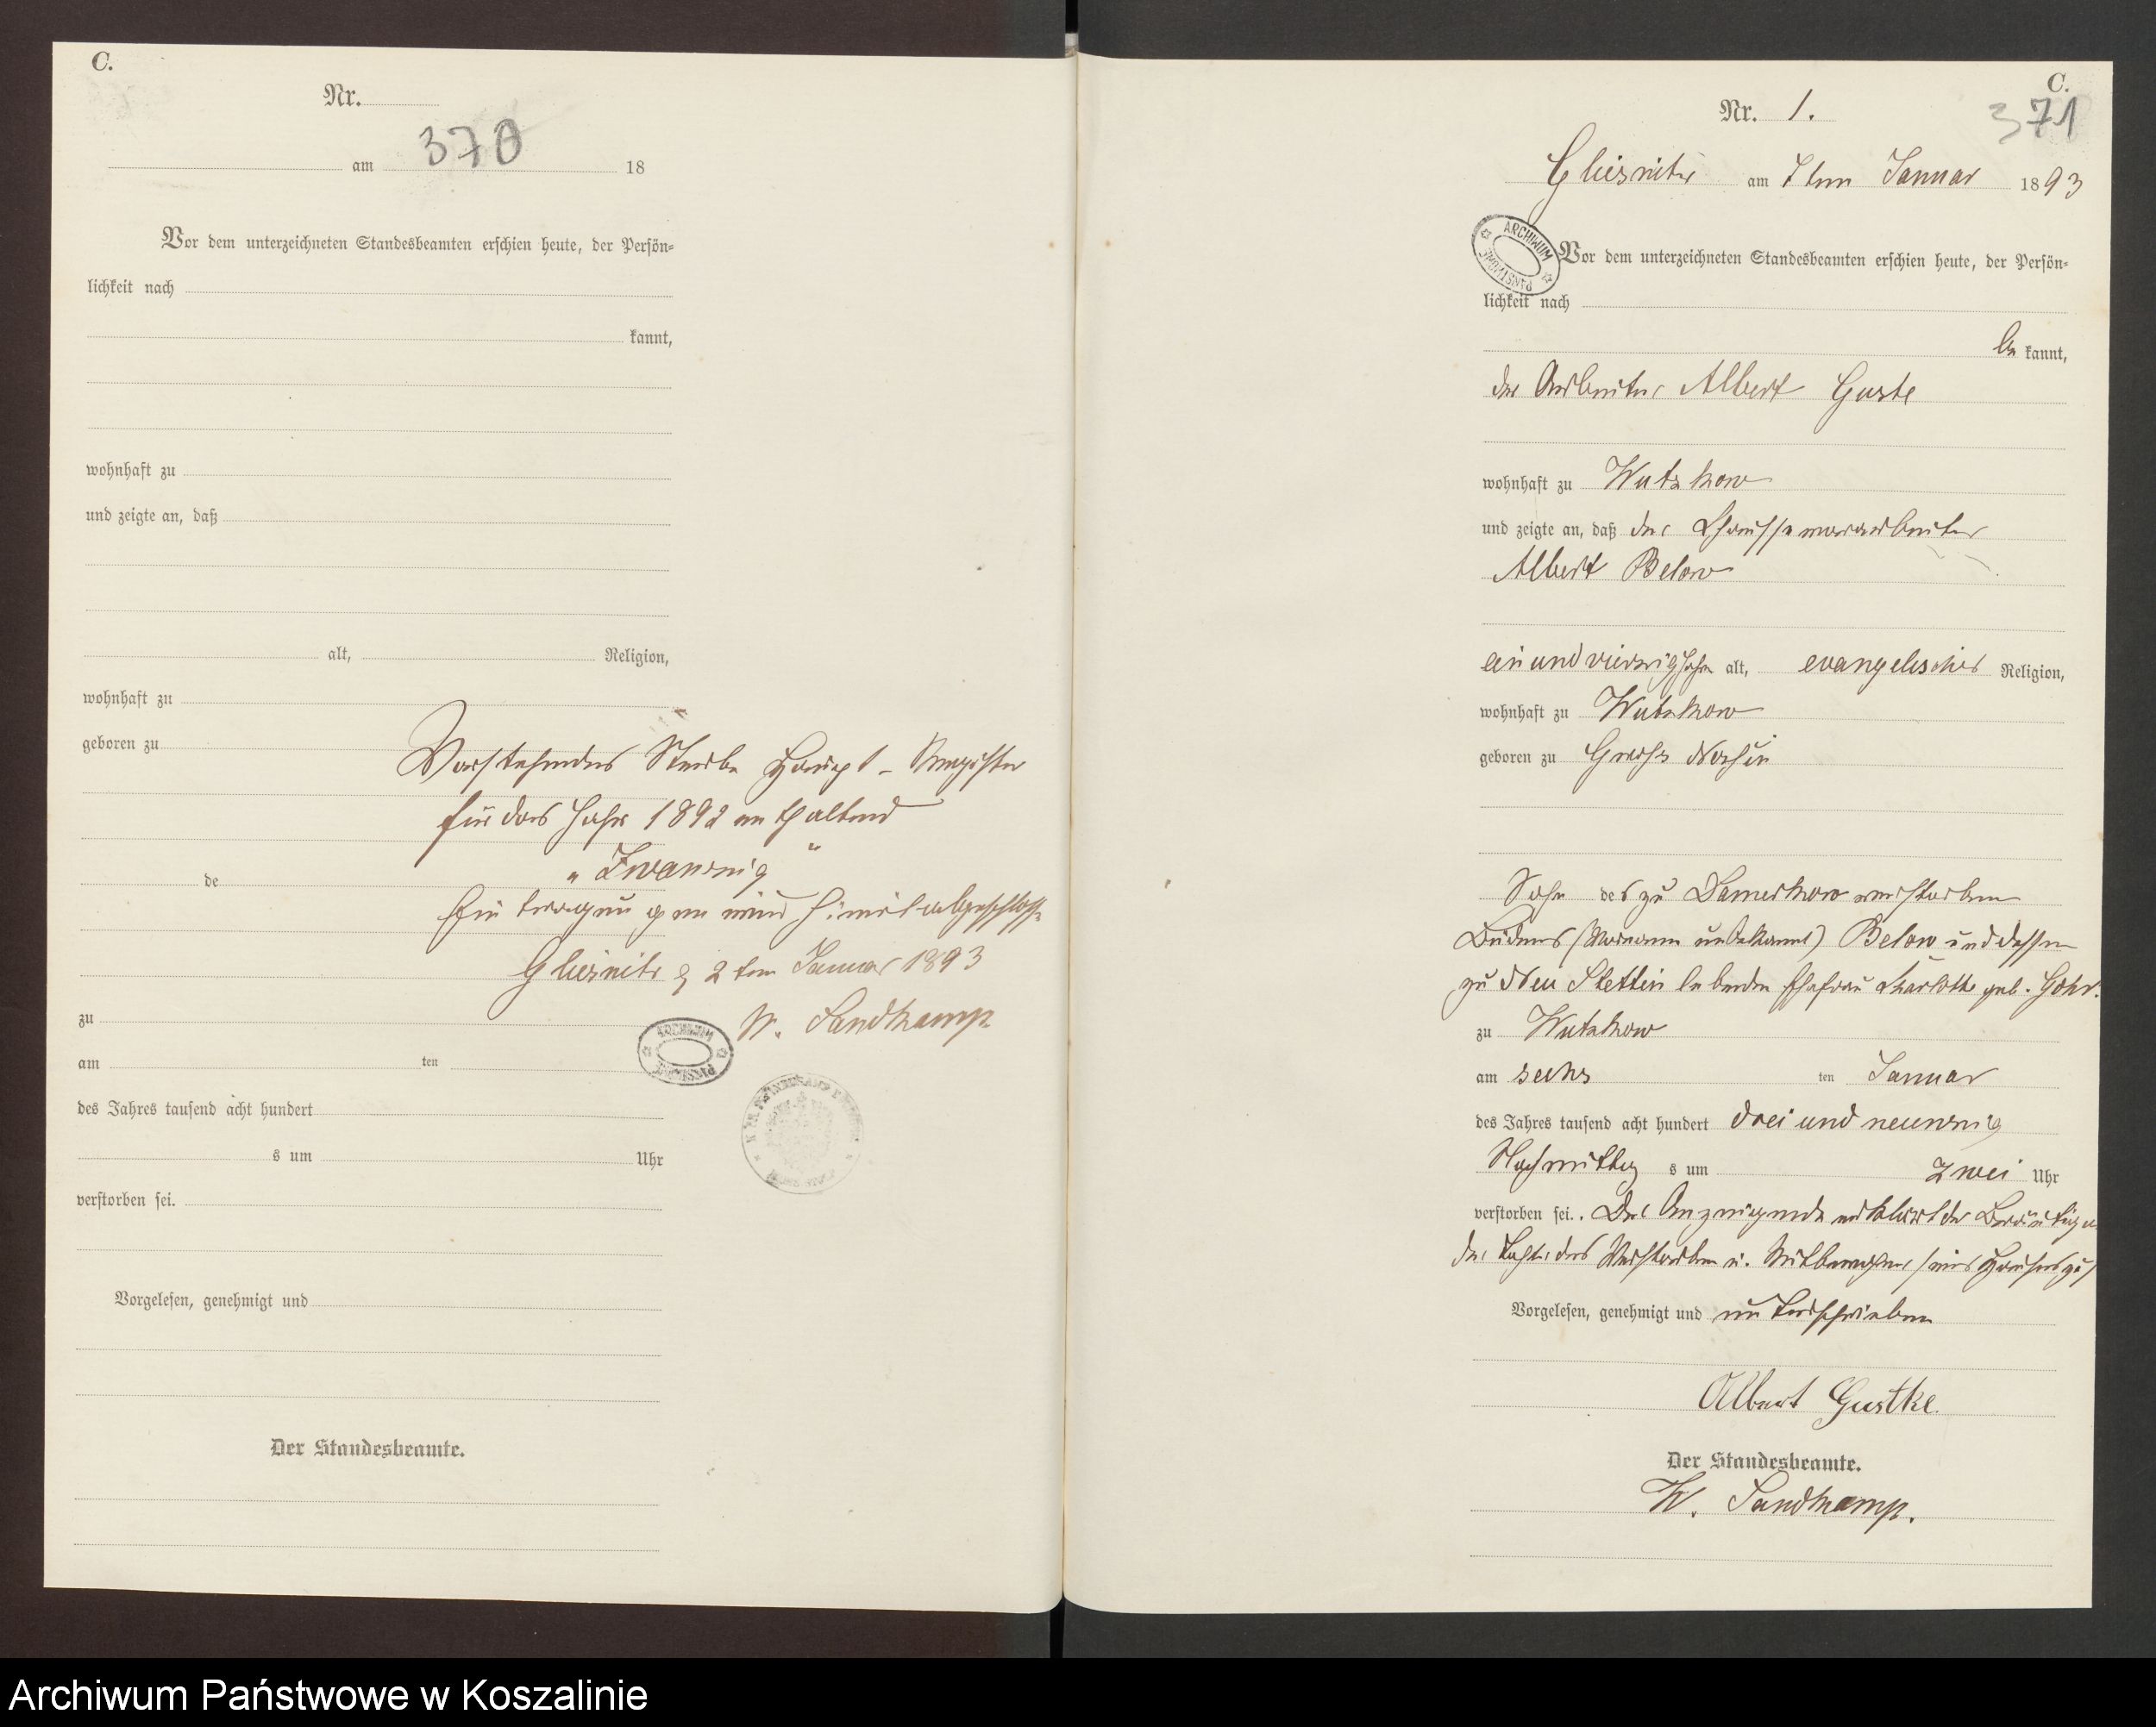 C.
Nr.
370
am 18
Vor dem unterzeichneten Standesbeamten erschien heute, der Persön-
lichkeit nach
kannt,
wohnhaft zu
und zeigte an, daß
alt, Religion,
wohnhaft zu
geboren zu
Vorstehendes Sterbe Haupt-Register
für das Jahr 1892 enthaltend
" Zwanzig "
Eintragungen wird hiermit abgeschlossen
de
Gliesnitz d 2ten Januar 1893
W. Sandkamp
zu
am ten
des Jahres tausend acht hundert
s um Uhr
verstorben sei.
Vorgelesen, genehmigt und
Der Standesbeamte.
ARCHIWUM PAŃSTWOWE
C.
371
Nr. 1.
Gliesnitz am 7ten Januar 1893
ARCHIWUM PAŃSTWOWE
Vor dem unterzeichneten Standesbeamten erschien heute, der Persön-
lichkeit nach
be kannt,
der Arbeiter Albert Guste
wohnhaft zu Wutzkow
und zeigte an, daß der Chausseearbeiter
Albert Below
ein und vierzig Jahr alt, evangelischer Religion,
wohnhaft zu Wutzkow
geboren zu Gross Nossin
Sohn des zu Damerkow verstorben
Büdners (Vorname unbekannt) Below und dessen
zu Neu Stettin lebende Ehefrau Charlotte geb. Gohr.
zu Wutzkow
am sechs ten Januar
des Jahres tausend acht hundert drei und neunzig
Nachmittag s um zwei Uhr
verstorben sei. Der Anzeigende erklärt der
der des Verstorben u. Mitbewohner seines Hauses zu
Vorgelesen, genehmigt und unterschrieben
Albert Gustke
Der Standesbeamte.
W. Sandkamp.
Archiwum Państwowe w Koszalinie